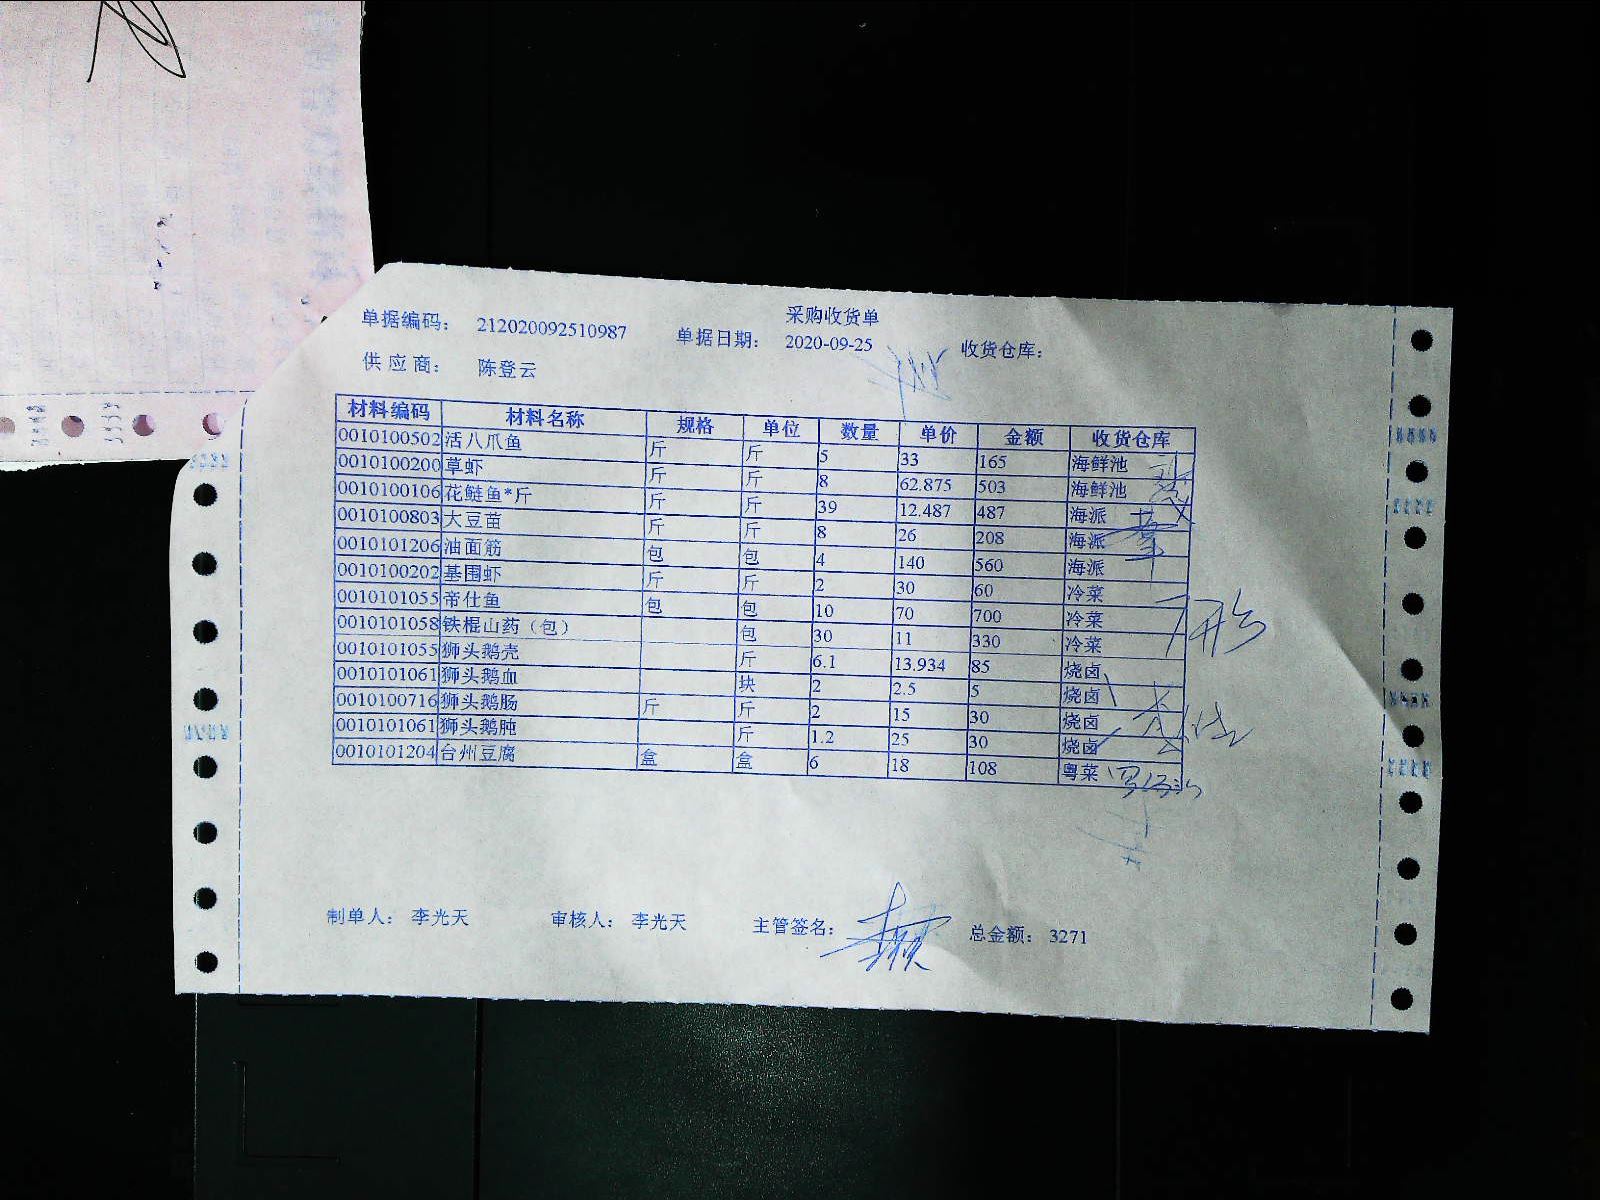 采购收货单
单据编码： 212020092510987 单据日期： 2020-09-25 收货仓库：
供应商： 陈登云
材料编码 材料名称 规格 单位 数量 单价 金额 收货仓库
0010100502 活八爪鱼 斤 斤 5 33 165 海鲜池
0010100200 草虾 斤 斤 8 62.875 503 海鲜池
0010100106 花鲢鱼*斤 斤 斤 39 12.487 487 海派
0010100803 大豆苗 斤 斤 8 26 208 海派
0010101206 油面筋 包 包 4 140 560 海派
0010100202 基围虾 斤 斤 2 30 60 冷菜
0010101055 帝仕鱼 包 包 10 70 700 冷菜
0010101058 铁棍山药（包） 包 30 11 330 冷菜
0010101055 狮头鹅壳 斤 6.1 13.934 85 烧卤
0010101061 狮头鹅血 块 2 2.5 5 烧卤
0010100716 狮头鹅肠 斤 斤 2 15 30 烧卤
0010101061 狮头鹅肫 斤 1.2 25 30 烧卤
0010101204 台州豆腐 盒 盒 6 18 108 粤菜
制单人： 李光天 审核人： 李光天 主管签名： 总金额： 3271